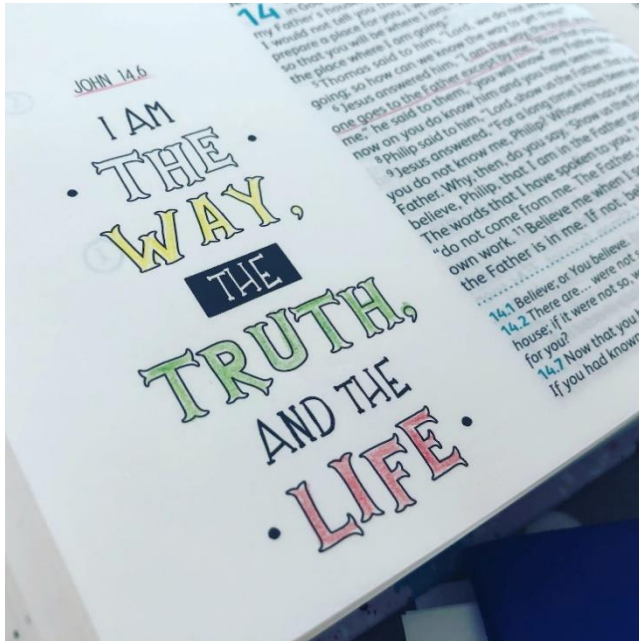 JOHN 14.6
I AM
THE
WAY,
THE
TRUTH,
AND THE
LIFE
14
my Father's house
I would not tell you
prepare a place for you,
so that you will be where I am.
the place where I am going."
5 Thomas said to him, "Lord, we do not
going; so how can we know the way to get
6 Jesus answered him, "I am the way, the
one goes to the Father except by me.
me," he said to them, "you will know my Father
now on you do know him and you have seen
8 Philip said to him, "Lord, show us the Father;
9 Jesus answered, "For a long time I have been
you do not know me, Philip? Whoever has seen
Father. Why, then, do you say, 'Show us the
believe, Philip, that I am in the Father
The words that I have spoken to you,"
"do not come from me. The Father
own work. 11 Believe me when I
the Father is in me. If not, b
14.1 Believe; or You believe.
14.2 There are... were not s
house; if it were not so
for you?
14.7 Now that you
If you had known